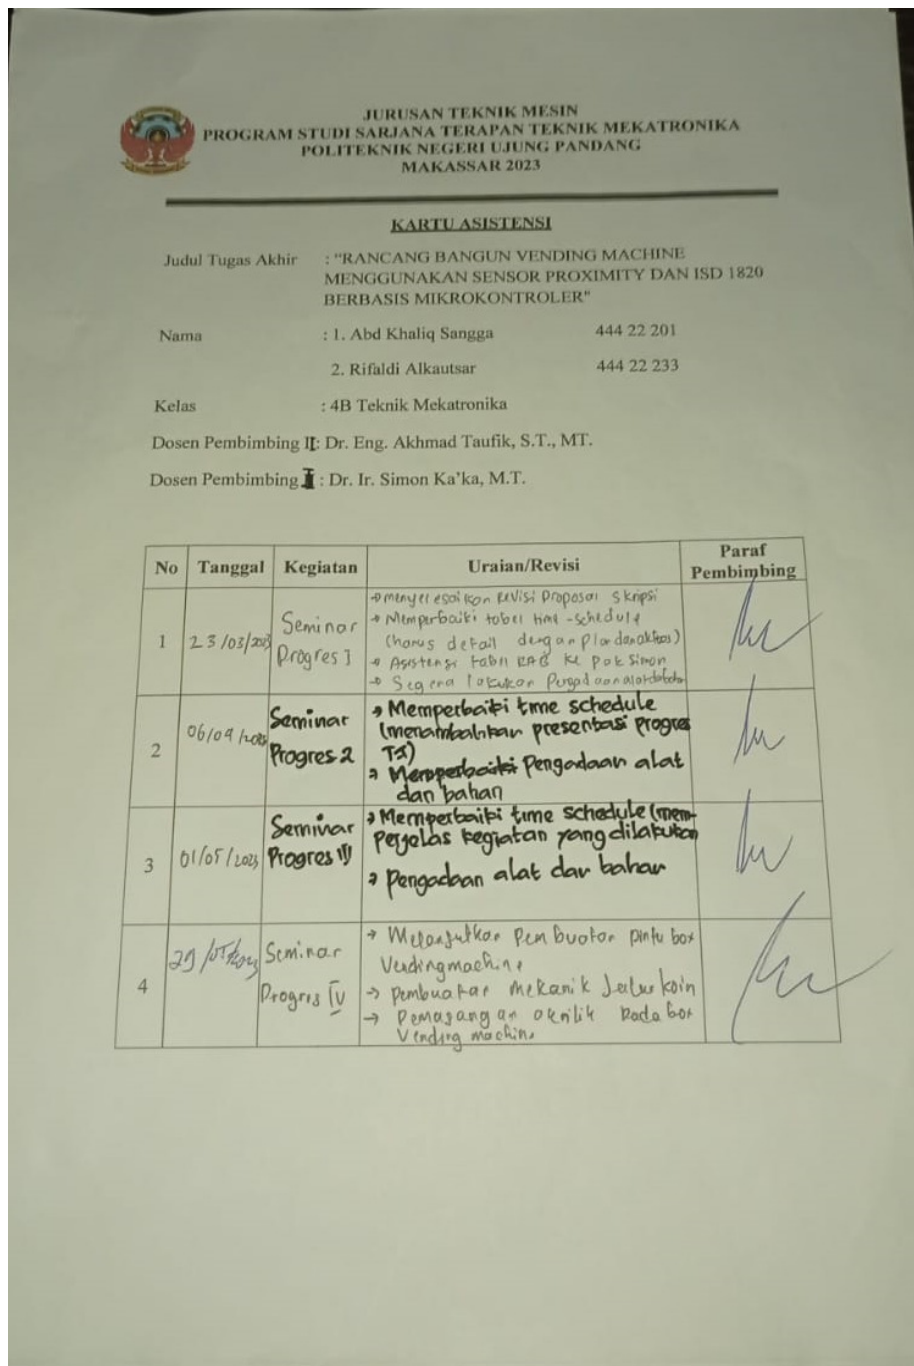 JURUSAN TEKNIK MESIN
PROGRAM STUDI SARJANA TERAPAN TEKNIK MEKATRONIKA
POLITEKNIK NEGERI UJUNG PANDANG
MAKASSAR 2023
KARTU ASISTENSI
Judul Tugas Akhir : "RANCANG BANGUN VENDING MACHINE
MENGGUNAKAN SENSOR PROXIMITY DAN ISD 1820
BERBASIS MIKROKONTROLER"
Nama : 1. Abd Khaliq Sangga 444 22 201
2. Rifaldi Alkautsar 444 22 233
Kelas : 4B Teknik Mekatronika
Dosen Pembimbing II: Dr. Eng. Akhmad Taufik, S.T., MT.
Dosen Pembimbing I : Dr. Ir. Simon Ka'ka, M.T.
No Tanggal Kegiatan Uraian/Revisi Paraf Pembimbing
1 23/03/2023 Seminar Progres I
→ menyelesaikan Revisi Proposal Skripsi
→ Memperbaiki tabel time-schedule
(harus detail dengan plan dan
→ Asistensi tabel RAB ke pak Simon
→ Segera lakukan Pengadaan alat dan bahan
2 06/04/2023 Seminar Progres 2
→ Memperbaiki time schedule
(menambahkan presentasi progres
TA)
→ Memperbaiki Pengadaan alat
dan bahan
3 01/05/2023 Seminar Progres III
→ Memperbaiki time schedule (mem-
perjelas kegiatan yang dilakukan
→ Pengadaan alat dan bahan
4 Seminar Progres IV
→ Melanjutkan Pembuatan pintu box
Vending machine
→ pembuatan mekanik Jalur koin
→ Pemasangan akrilik pada box
Vending machine